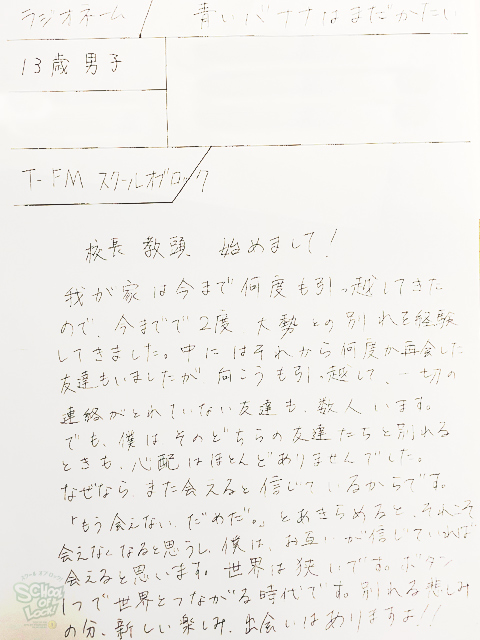 ラジオネーム / 青いバナナはまだかたい
13歳 男子
T-FM スクールオブロック
校長 教頭 始めまして!
我が家は今まで何度も引っ越してきた
ので、今までで2度 大勢との別れを経験
してきました。中にはそれから何度か再会した
友達もいましたが 向こうも引っ越して、一切の
連絡がとれていない友達も、数人います。
でも、僕はそのどちらの友達たちと別れる
ときも、心配はほとんどありませんでした。
なぜなら、また会えると信じているからです。
「もう会えない、だめだ。」とあきらめると、それこそ
会えなくなると思うし、僕は、お互いが信じていれば
会えると思います。世界は狭いです。ボタン
1つで世界とつながる時代です。別れる悲しみ
の分、新しい楽しみ、出会いはありますよ!!
SCHOOL OF LOCK!